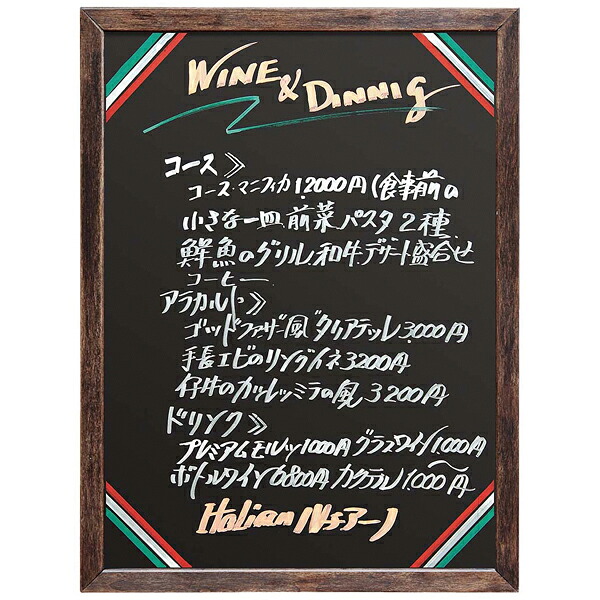 WINE & DINNIG
コース》
コース・マニフィカ12000円(食事前の
小さな一皿 前菜 パスタ2種
鮮魚のグリル 和牛 デザート盛合せ
コーヒー
アラカルト》
ゴッドファザー風"タリアテッレ 3000円
手長エビのリングイネ3200円
仔牛のカツレツミラの風 3200円
ドリンク》
プレミアムモルツ1000円 グラスワイン1000円
ボトルワイン6800円 カクテル1000〜円
Italian パチアーノ